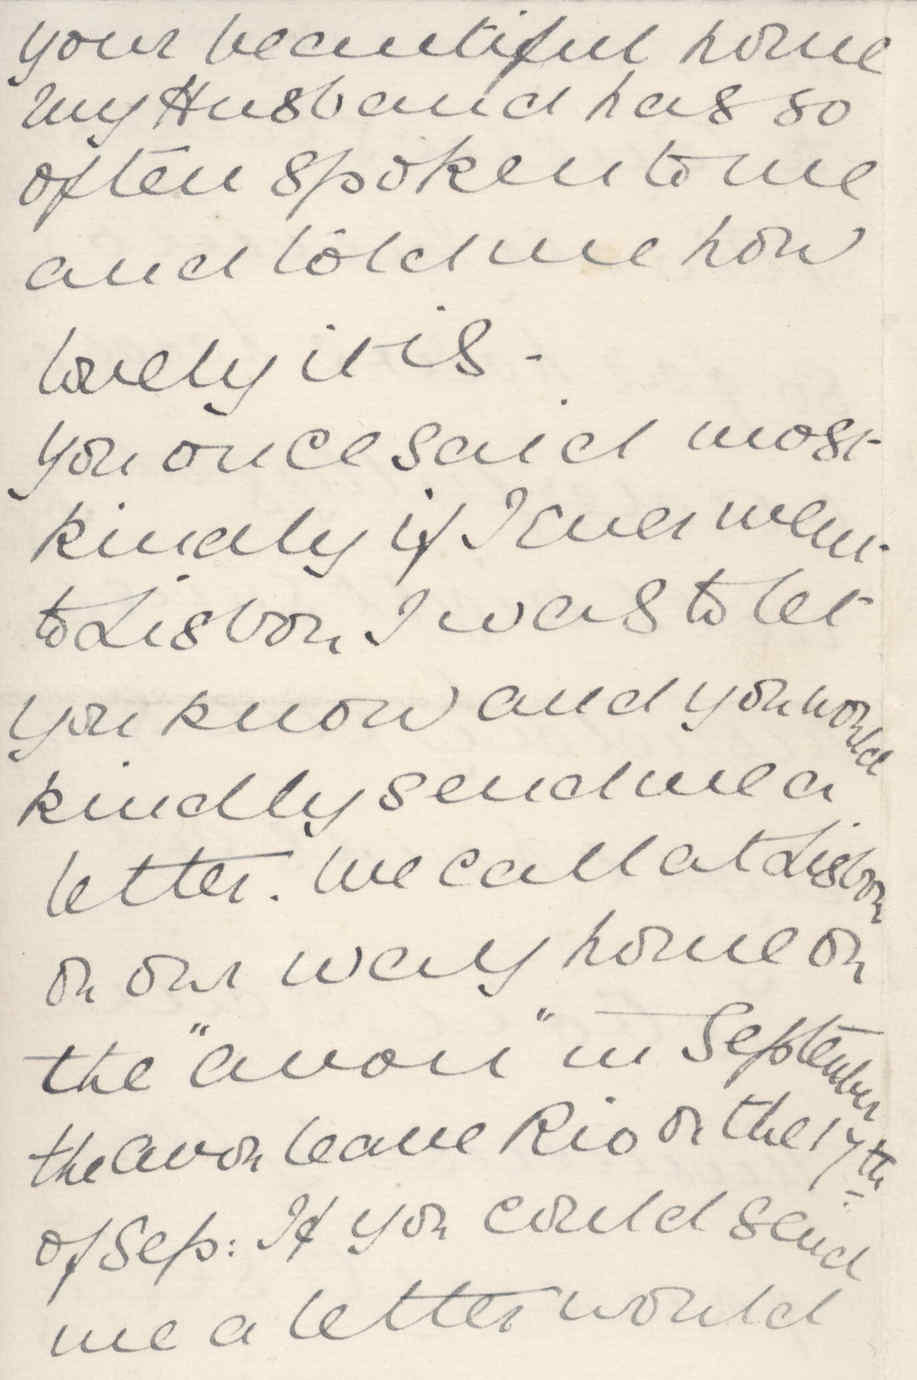 your beautiful home
my Husband has so
often spoken to me
and told me how
lovely it is -
you once said most
kindly if I ever went
to Lisbon I was to let
you know and you would
kindly send me a
letter. We call at Lisbon
on our way home on
the "avon" in September
the avon leave Rio on the 17th
of Sep: If you could send
me a letter would